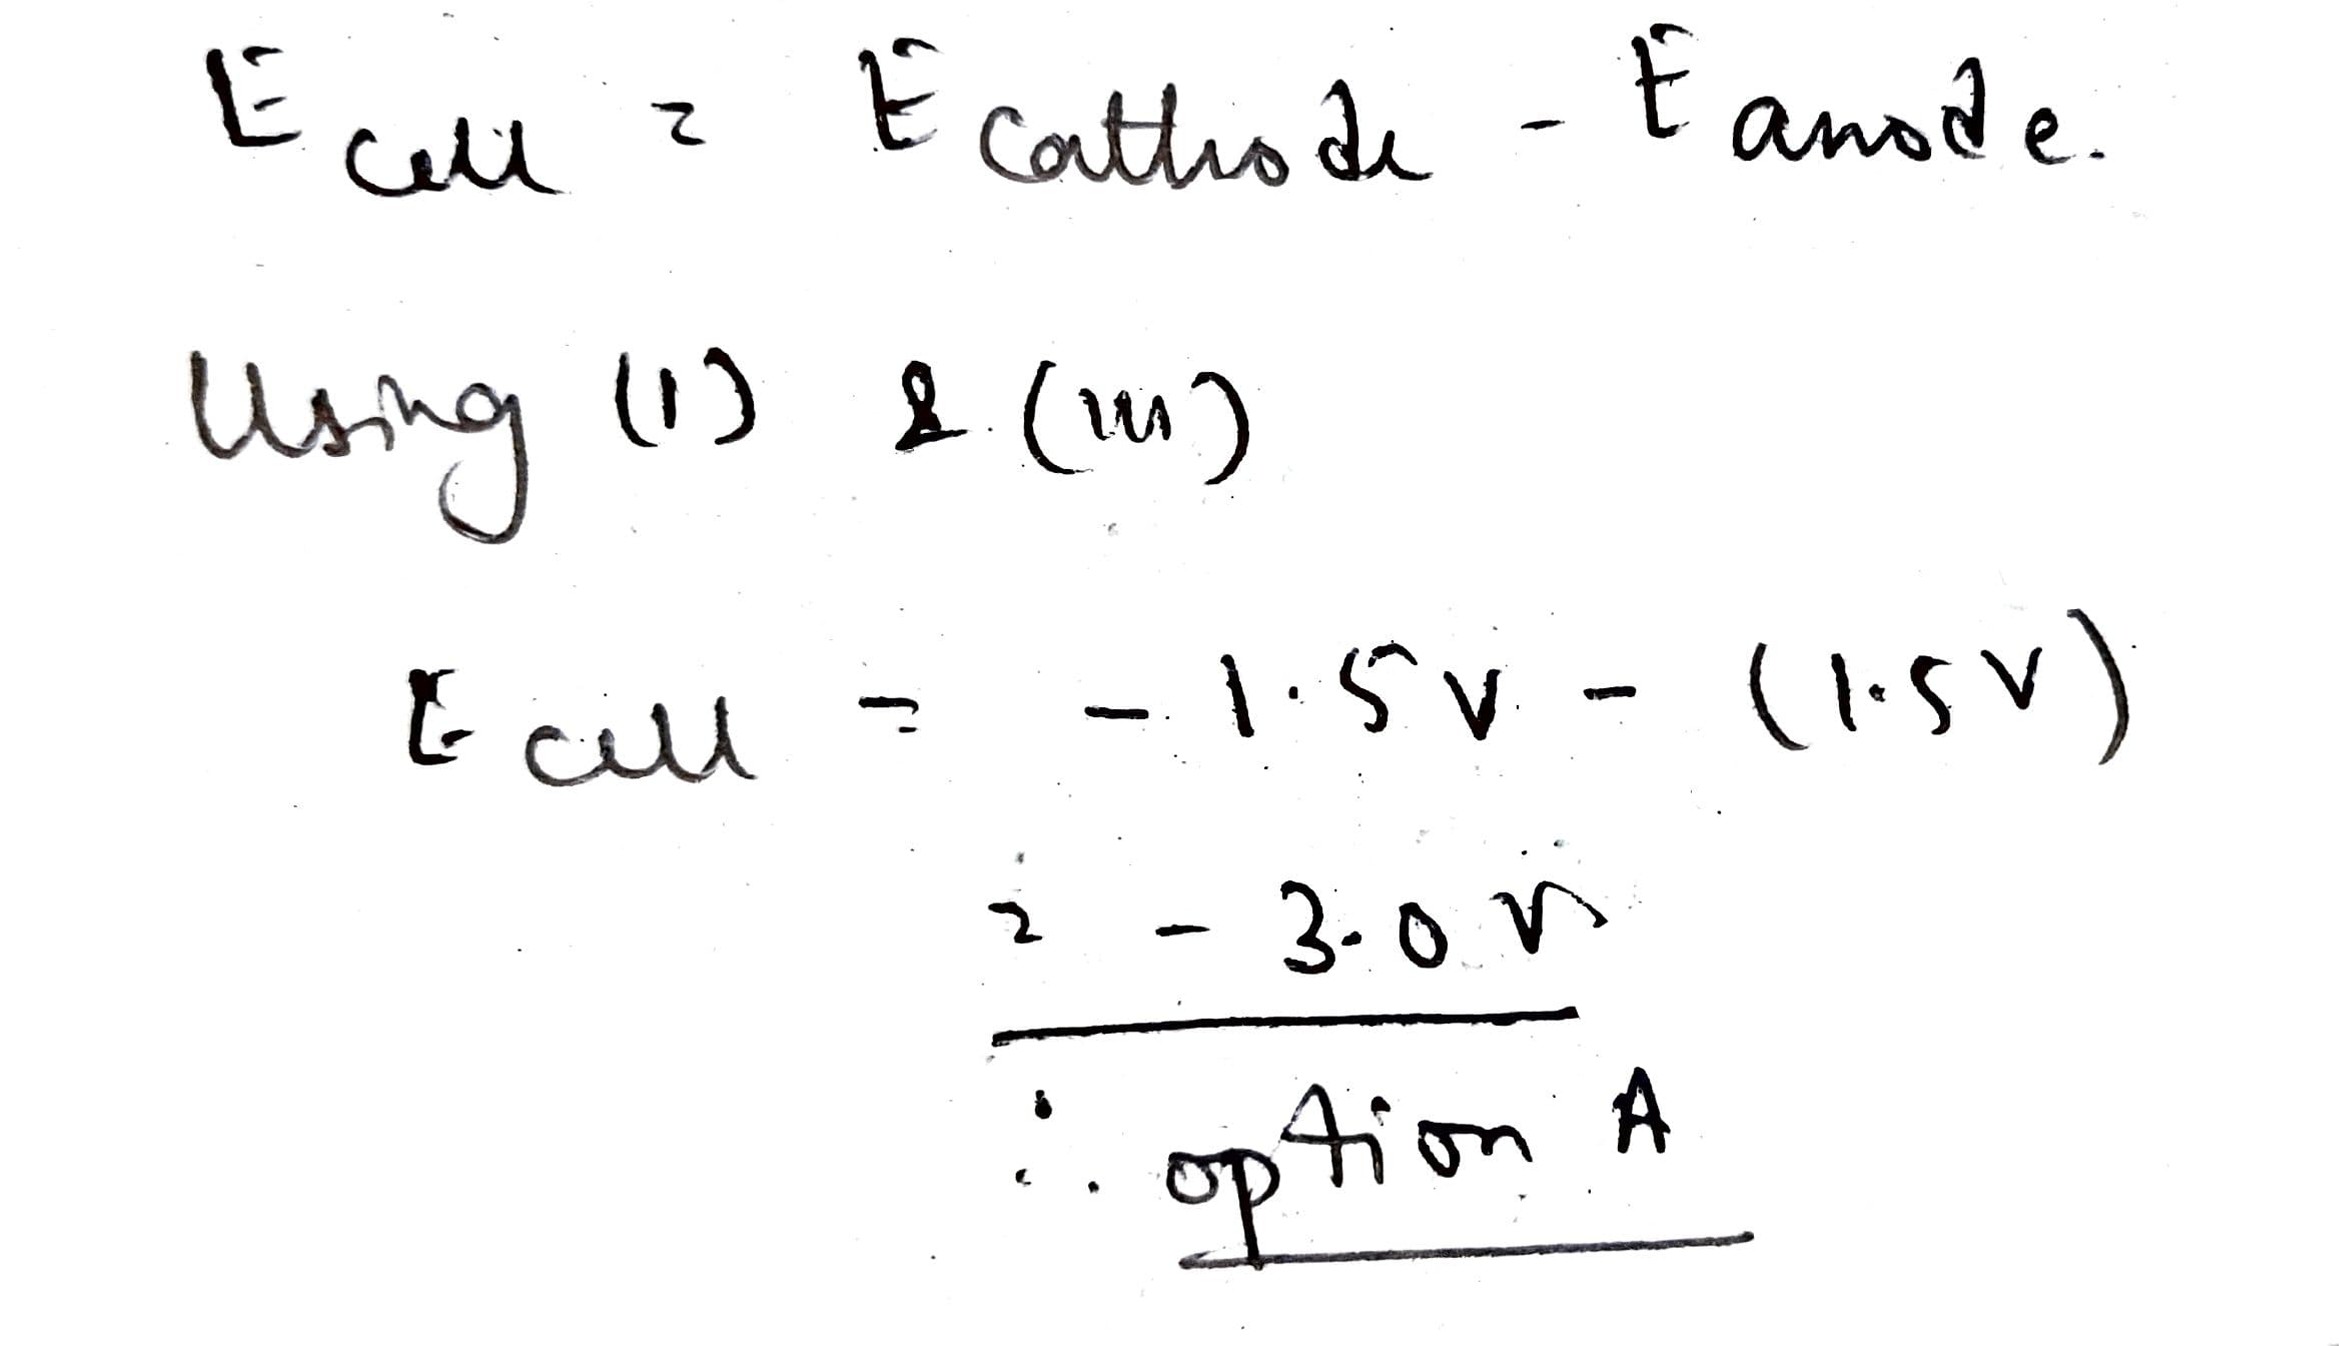 E cell = E cathode - E anode.
Using (I) & (III)
E cell = - 1.5 V - (1.5 V)
= - 3.0 V
∴ option A